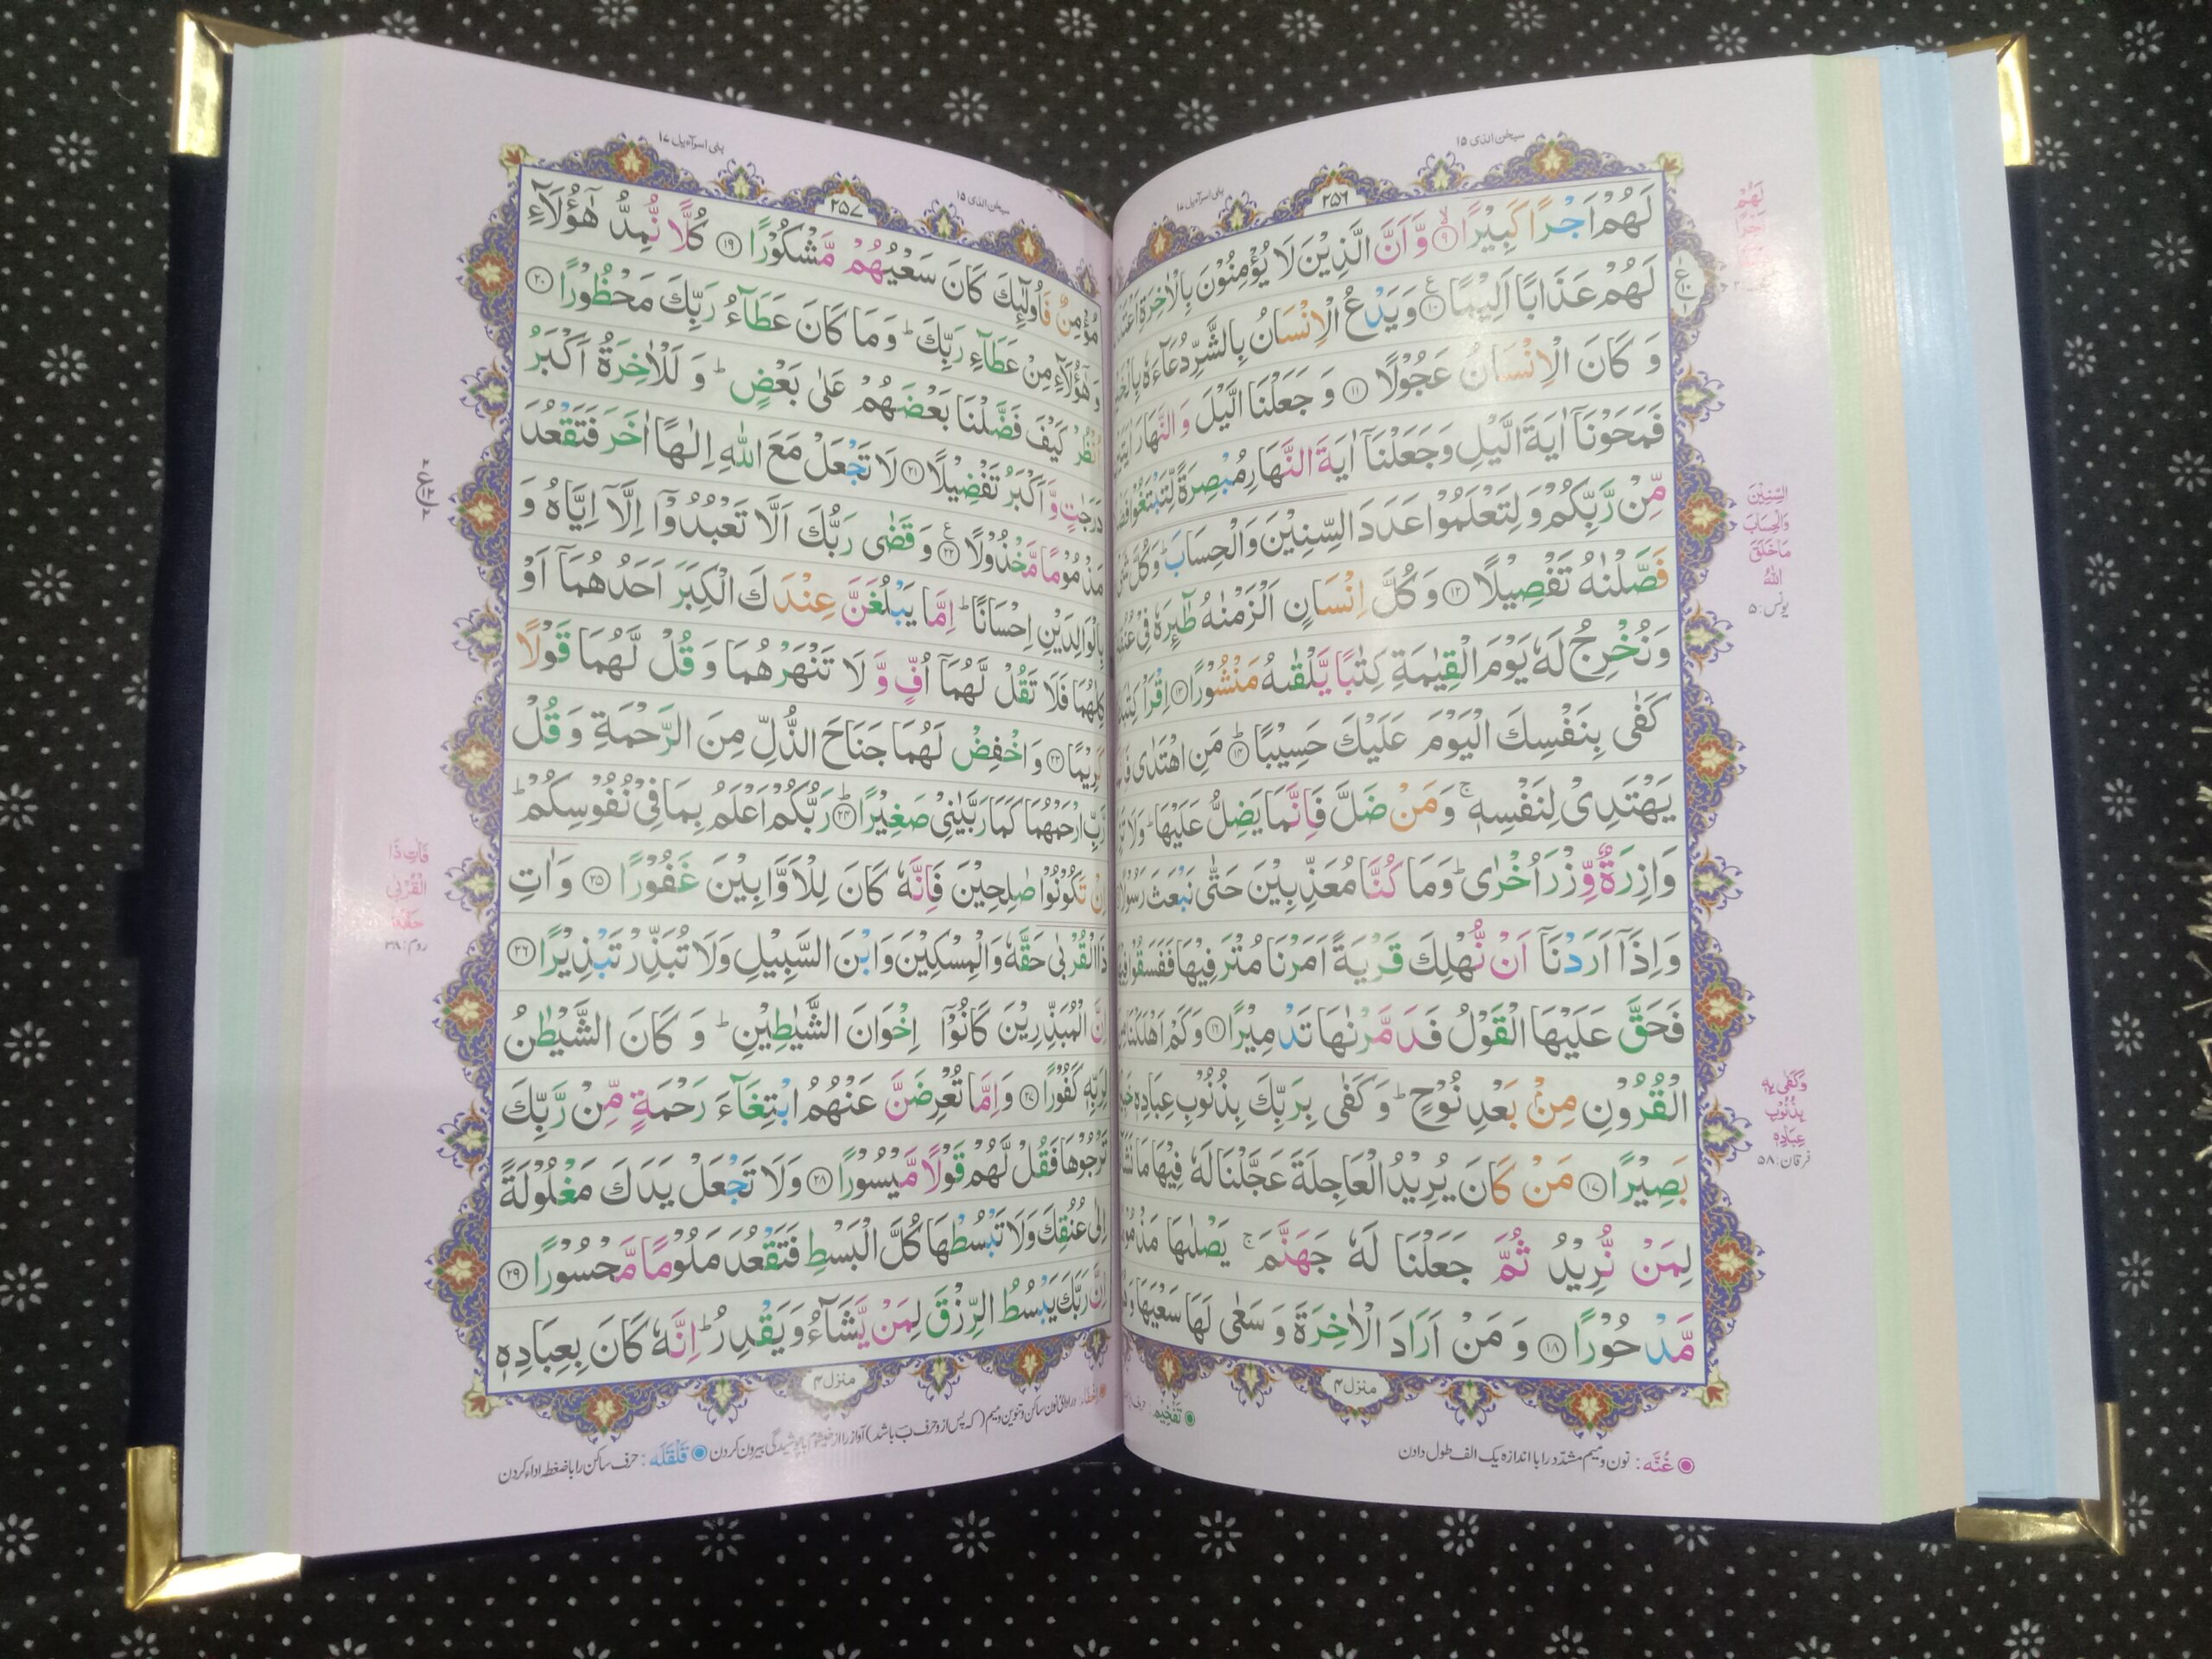 سبحٰن الذی ١٥
بنی اسرآءیل ١٧
٢٥٦
لَهُمْ اَجْرًا كَبِيْرًا ۙ ٩ وَّ اَنَّ الَّذِيْنَ لَا يُؤْمِنُوْنَ بِالْاٰخِرَةِ
لَهُمْ عَذَابًا اَلِيْمًا ١٠ ع وَ يَدْعُ الْاِنْسَانُ بِالشَّرِّ دُعَآءَهٗ
وَ كَانَ الْاِنْسَانُ عَجُوْلًا ١١ وَ جَعَلْنَا الَّيْلَ وَ النَّهَارَ
فَمَحَوْنَاۤ اٰيَةَ الَّيْلِ وَ جَعَلْنَاۤ اٰيَةَ النَّهَارِ مُبْصِرَةً لِّتَبْتَغُوْا
مِّنْ رَّبِّكُمْ وَ لِتَعْلَمُوْا عَدَدَ السِّنِيْنَ وَ الْحِسَابَ ؕ وَ كُلَّ
فَصَّلْنٰهُ تَفْصِيْلًا ١٢ وَ كُلَّ اِنْسَانٍ اَلْزَمْنٰهُ طٰٓئِرَهٗ فِیْ
وَ نُخْرِجُ لَهٗ يَوْمَ الْقِيٰمَةِ كِتٰبًا يَّلْقٰىهُ مَنْشُوْرًا ١٣ اِقْرَاْ
كَفٰى بِنَفْسِكَ الْيَوْمَ عَلَيْكَ حَسِيْبًا ؕ ١٤ مَنِ اهْتَدٰى
يَهْتَدِیْ لِنَفْسِهٖ ۚ وَ مَنْ ضَلَّ فَاِنَّمَا يَضِلُّ عَلَيْهَا ؕ وَ لَا
وَازِرَةٌ وِّزْرَ اُخْرٰى ؕ وَ مَا كُنَّا مُعَذِّبِيْنَ حَتّٰى نَبْعَثَ رَسُوْلًا
وَ اِذَاۤ اَرَدْنَاۤ اَنْ نُّهْلِكَ قَرْيَةً اَمَرْنَا مُتْرَفِيْهَا فَفَسَقُوْا
فَحَقَّ عَلَيْهَا الْقَوْلُ فَدَمَّرْنٰهَا تَدْمِيْرًا ١٦ وَ كَمْ اَهْلَكْنَا
الْقُرُوْنِ مِنْۢ بَعْدِ نُوْحٍ ؕ وَ كَفٰى بِرَبِّكَ بِذُنُوْبِ عِبَادِهٖ
بَصِيْرًا ١٧ مَنْ كَانَ يُرِيْدُ الْعَاجِلَةَ عَجَّلْنَا لَهٗ فِيْهَا مَا
لِمَنْ نُّرِيْدُ ثُمَّ جَعَلْنَا لَهٗ جَهَنَّمَ ۚ يَصْلٰىهَا
مَّدْحُوْرًا ١٨ وَ مَنْ اَرَادَ الْاٰخِرَةَ وَ سَعٰى لَهَا سَعْيَهَا
منزل ٤
لَهُمْ
اَجْرًا
السِّنِيْنَ
وَالْحِسَابَ
مَا خَلَقَ
اللّٰهُ
یونس: ٥
وَكَفٰى بِهٖ
بِذُنُوْبِ
عِبَادِهٖ
فرقان: ٥٨
تَفْخِیْم
غُنَّه : نون و میم مشدّد را با اندازه یک الف طول دادن
بنی اسرآءیل ١٧
سبحٰن الذی ١٥
٢٥٧
فَاُولٰٓئِكَ كَانَ سَعْيُهُمْ مَّشْكُوْرًا ١٩ كُلًّا نُّمِدُّ هٰۤؤُلَآءِ
وَ هٰۤؤُلَآءِ مِنْ عَطَآءِ رَبِّكَ ؕ وَ مَا كَانَ عَطَآءُ رَبِّكَ مَحْظُوْرًا ٢٠
كَيْفَ فَضَّلْنَا بَعْضَهُمْ عَلٰى بَعْضٍ ؕ وَ لَلْاٰخِرَةُ اَكْبَرُ
دَرَجٰتٍ وَّ اَكْبَرُ تَفْضِيْلًا ٢١ لَا تَجْعَلْ مَعَ اللّٰهِ اِلٰهًا اٰخَرَ فَتَقْعُدَ
مَذْمُوْمًا مَّخْذُوْلًا ٢٢ ع وَ قَضٰى رَبُّكَ اَلَّا تَعْبُدُوْۤا اِلَّاۤ اِيَّاهُ وَ
بِالْوَالِدَيْنِ اِحْسَانًا ؕ اِمَّا يَبْلُغَنَّ عِنْدَكَ الْكِبَرَ اَحَدُهُمَاۤ اَوْ
كِلٰهُمَا فَلَا تَقُلْ لَّهُمَاۤ اُفٍّ وَّ لَا تَنْهَرْهُمَا وَ قُلْ لَّهُمَا قَوْلًا
كَرِيْمًا ٢٣ وَ اخْفِضْ لَهُمَا جَنَاحَ الذُّلِّ مِنَ الرَّحْمَةِ وَ قُلْ
رَّبِّ ارْحَمْهُمَا كَمَا رَبَّيٰنِیْ صَغِيْرًا ؕ ٢٤ رَبُّكُمْ اَعْلَمُ بِمَا فِیْ نُفُوْسِكُمْ ؕ
اِنْ تَكُوْنُوْا صٰلِحِيْنَ فَاِنَّهٗ كَانَ لِلْاَوَّابِيْنَ غَفُوْرًا ٢٥ وَ اٰتِ
ذَا الْقُرْبٰى حَقَّهٗ وَ الْمِسْكِيْنَ وَ ابْنَ السَّبِيْلِ وَ لَا تُبَذِّرْ تَبْذِيْرًا ٢٦
اِنَّ الْمُبَذِّرِيْنَ كَانُوْۤا اِخْوَانَ الشَّيٰطِيْنِ ؕ وَ كَانَ الشَّيْطٰنُ
لِرَبِّهٖ كَفُوْرًا ٢٧ وَ اِمَّا تُعْرِضَنَّ عَنْهُمُ ابْتِغَآءَ رَحْمَةٍ مِّنْ رَّبِّكَ
تَرْجُوْهَا فَقُلْ لَّهُمْ قَوْلًا مَّيْسُوْرًا ٢٨ وَ لَا تَجْعَلْ يَدَكَ مَغْلُوْلَةً
اِلٰى عُنُقِكَ وَ لَا تَبْسُطْهَا كُلَّ الْبَسْطِ فَتَقْعُدَ مَلُوْمًا مَّحْسُوْرًا ٢٩
اِنَّ رَبَّكَ يَبْسُطُ الرِّزْقَ لِمَنْ يَّشَآءُ وَ يَقْدِرُ ؕ اِنَّهٗ كَانَ بِعِبَادِهٖ
منزل ٤
فَاٰتِ ذَا
الْقُرْبٰى
حَقَّهٗ
روم: ٣٨
نون ساکن و تنوین و میم ( که پس از و حرف ب باشد) آواز را از خیشوم با پوشیدگی بیرون کردن قَلْقَلَه : حرف ساکن را با ضغطه اداء کردن